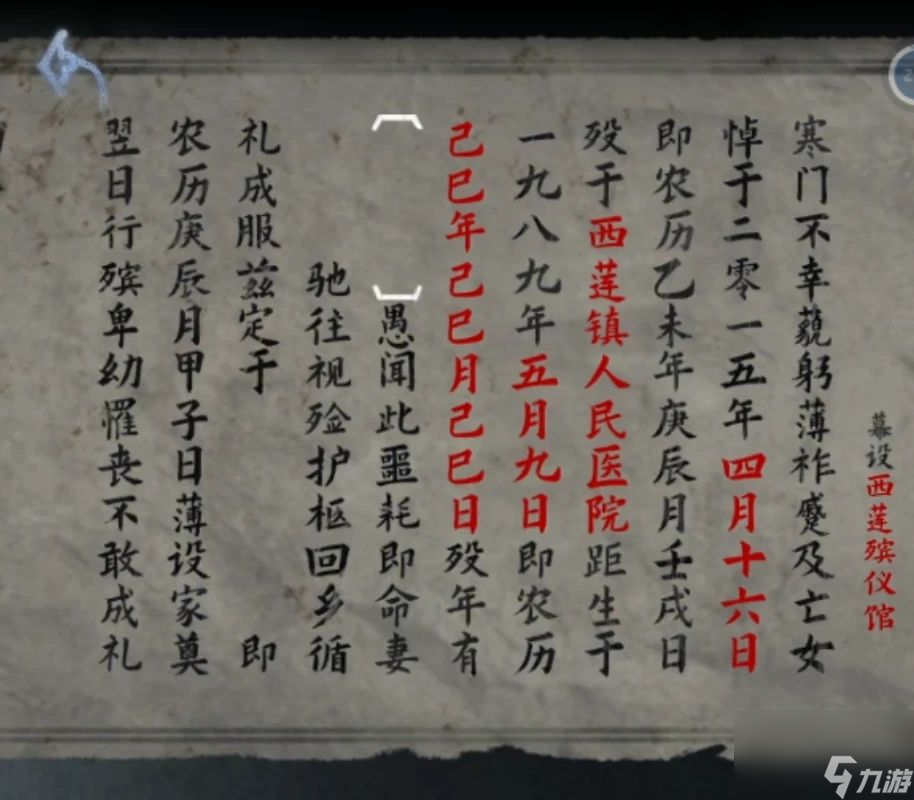 幕设西莲殡仪馆
寒门不幸藐躬薄祚蹙及亡女
悼于二零一五年四月十六日
即农历乙未年庚辰月壬戌日
殁于西莲镇人民医院距生于
一九八九年五月九日即农历
己巳年己巳月己巳日殁年有
愚闻此噩耗即命妻
驰往视殓护柩回乡循
礼成服兹定于 即
农历庚辰月甲子日薄设家奠
翌日行殡卑幼罹丧不敢成礼
九游